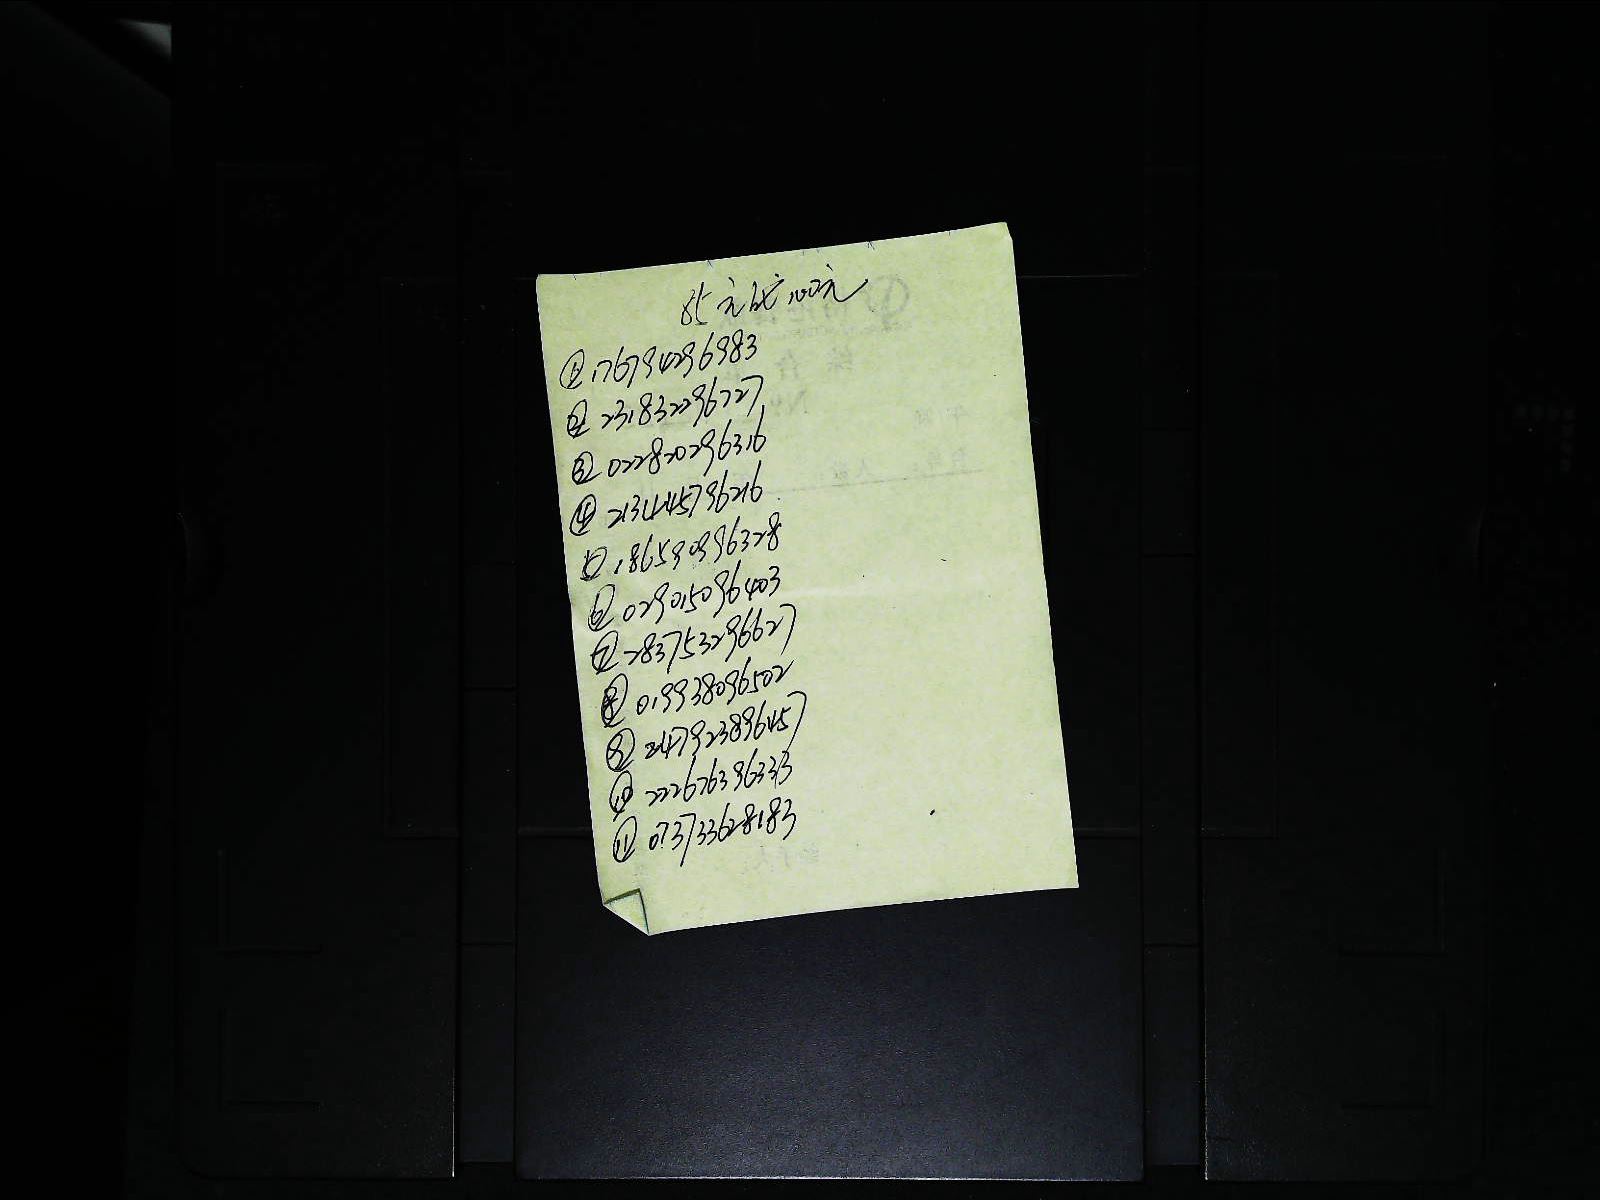 85元代100元
① 176794296983
② 231832296727
③ 022820296316
④ 213445796216
⑤ 186590996328
⑥ 029015096403
⑦ 283753296627
⑧ 019938096502
⑨ 247923896457
⑩ 222676396333
⑪ 073733628183